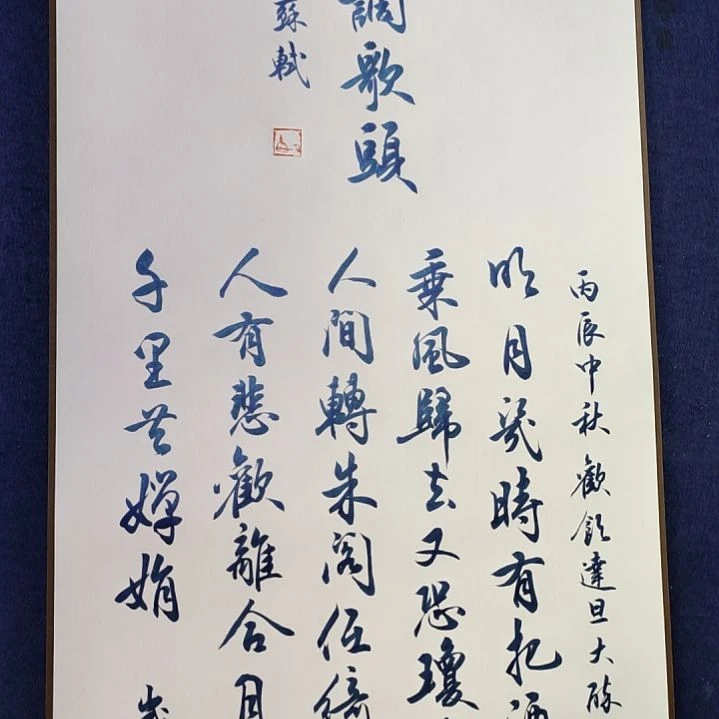 調歌頭
蘇軾
丙辰中秋歡飲達旦大醉
明月幾時有把酒
乘風歸去又恐瓊
人間轉朱閣低綺
人有悲歡離合月
千里共嬋娟